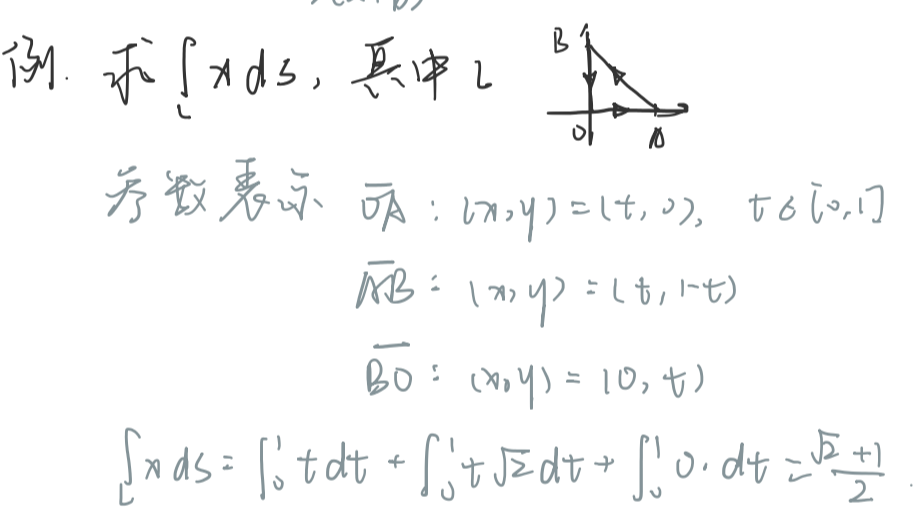 例. 求∫_L x ds, 其中 L
B
O A
参数表示 \overline{OA} : (x,y)=(t,0), t∈[0,1]
\overline{AB} : (x,y)=(t,1-t)
\overline{BO} : (x,y)=(0,t)
∫_L x ds = ∫_0^1 t dt + ∫_0^1 t√2 dt + ∫_0^1 0·dt = \frac{√2+1}{2}.